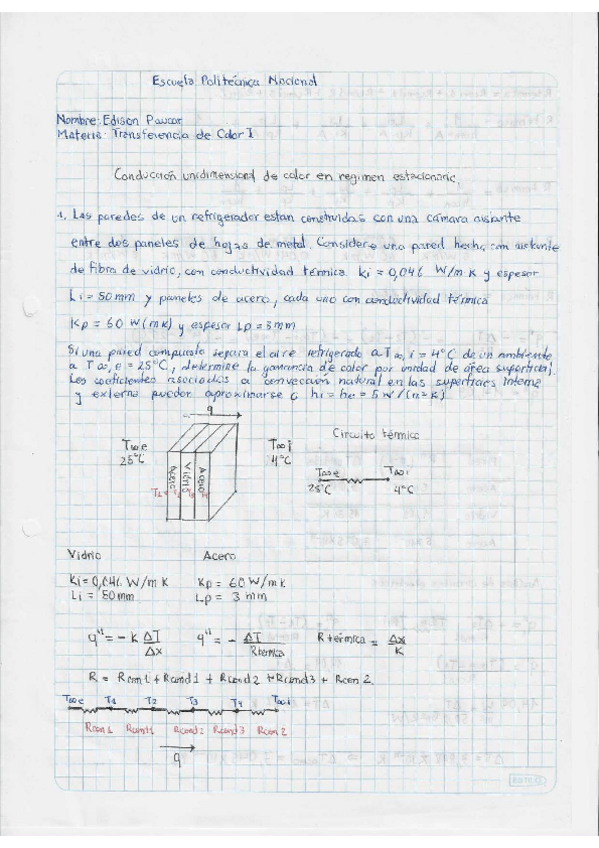 Escuela Politécnica Nacional
Nombre: Edison Paucar
Materia: Transferencia de Calor I
Conducción unidimensional de calor en regimen estacionario.
1. Las paredes de un refrigerador estan construidas con una cámara aislante
entre dos paneles de hojas de metal. Considere una pared hecha con aislante
de fibra de vidrio, con conductividad térmica ki = 0,046 W/m K y espesor
Li = 50 mm y paneles de acero, cada uno con conductividad térmica
Kp = 60 W(mk) y espesor Lp = 3mm
Si una pared compuesta separa el aire refrigerado a T∞, i = 4°C de un ambiente
a T∞, e = 25°C, determine la ganancia de calor por unidad de área superficial.
Los coeficientes asociados a convección natural en las superficies interna
y externa pueden aproximarse a hi = he = 5 W/(m² K)
q
Circuito térmico
T∞e T∞i
25°C 4°C
Acero Vidrio Acero
T∞e T∞i
25°C 4°C
Vidrio Acero
Ki = 0,046 W/m K Kp = 60 W/m K
Li = 50mm Lp = 3 mm
q" = - K ΔT/Δx q" = - ΔT/Rtermica R térmica = Δx/K
R = Rcon1 + Rcond1 + Rcond2 + Rcond3 + Rcon2.
T∞e T1 T2 T3 T4 T∞i
Rcon1 Rcond1 Rcond2 Rcond3 Rcon2
q